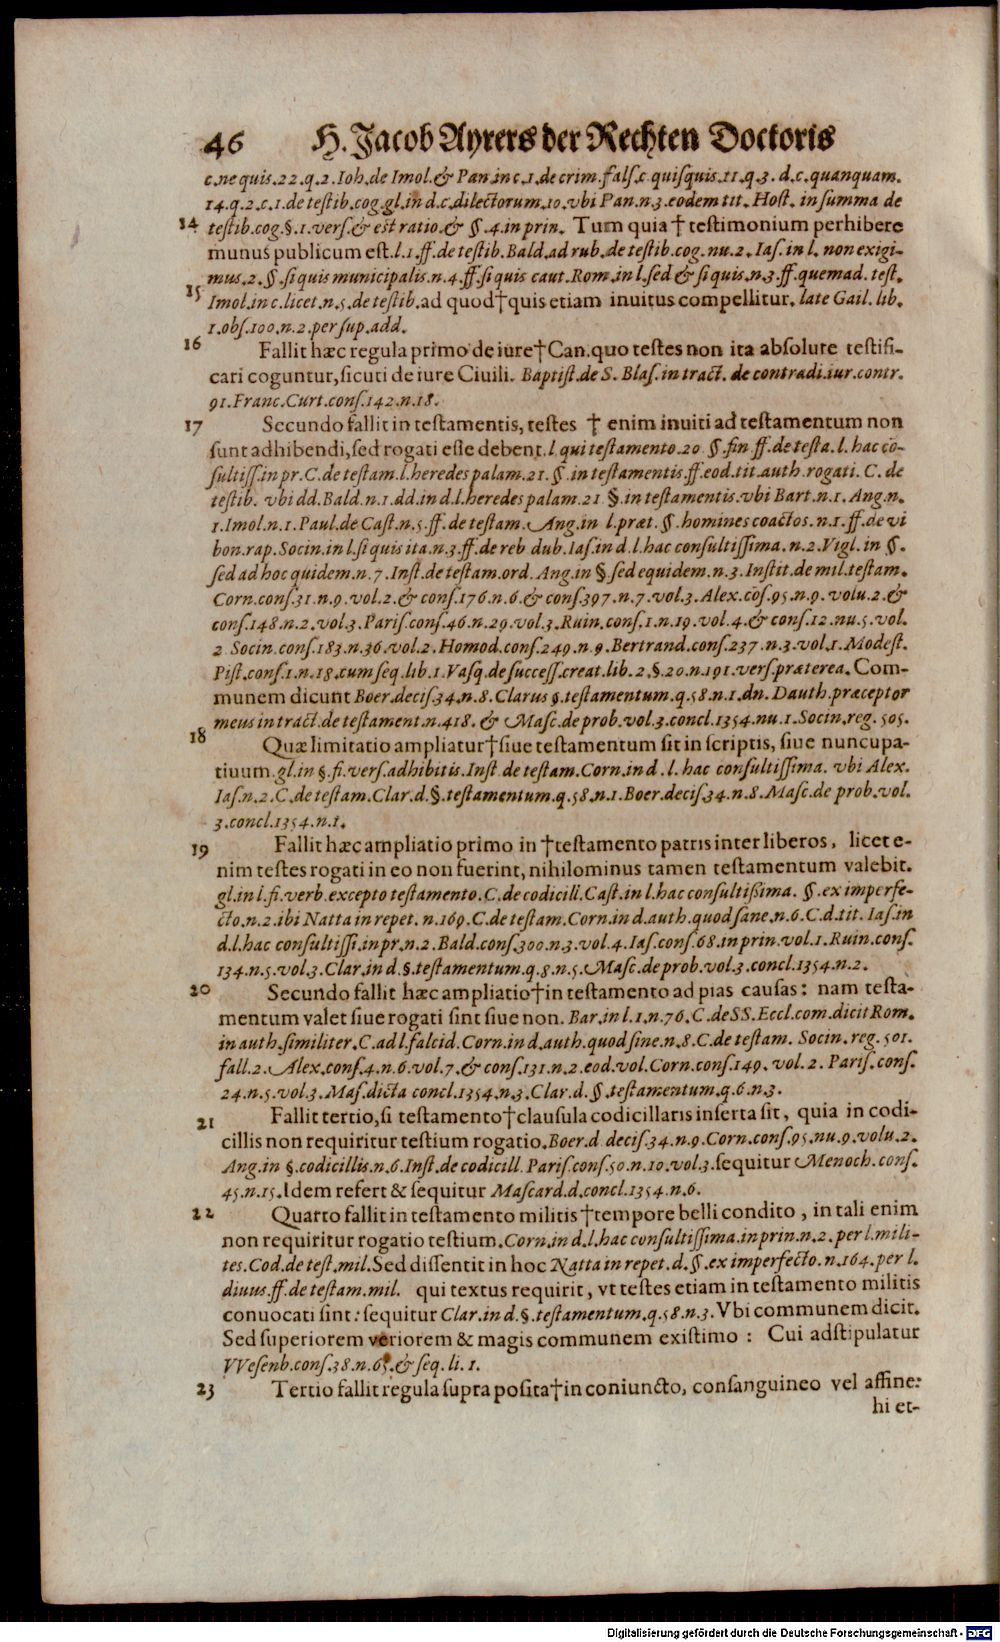 46 H. Jacob Ayrers der Rechten Doctoris
c.ne quis.22.q.2.Ioh.de Imol.& Pan.in c.1.de crim.fals.c.quisquis.11.q.3.d.c.quanquam.
14.q.2.c.1.de testib.cog.gl.in d.c.dilectorum.10.vbi Pan.n.3.eodem tit. Host. in summa de
14 testib.cog.§.1.vers.& est ratio.& §.4.in prin. Tum quia † testimonium perhibere
munus publicum est.l.1.ff.de testib.Bald.ad rub.de testib.cog.nu.2.Ias.in l. non exigi-
mus.2.§.si quis municipalis.n.4.ff.si quis caut.Rom.in l.sed & si quis.n.3.ff.quemad. test.
15 Imol.in c.licet.n.5.de testib.ad quod†quis etiam inuitus compellitur.late Gail. lib.
1.obs.100.n.2.per sup.add.
16 Fallit hæc regula primo de iure†Can.quo testes non ita absolute testifi-
cari coguntur,sicuti de iure Ciuili. Baptist.de S. Blas.in tract. de contradi.iur.contr.
91.Franc.Curt.cons.142.n.18.
17 Secundo fallit in testamentis, testes † enim inuiti ad testamentum non
sunt adhibendi,sed rogati esse debent.l qui testamento.20 §.fin.ff.de testa.l. hac cō-
sultiss.in pr.C.de testam.l.heredes palam.21.§.in testamentis.ff.eod.tit.auth.rogati. C. de
testib. vbi dd.Bald.n.1.dd.in d.l.heredes palam.21 §.in testamentis.vbi Bart.n.1. Ang.n.
1.Imol.n.1.Paul.de Cast.n.5.ff.de testam. Ang.in l.præt.§.homines coactos.n.1.ff.de vi
bon.rap.Socin.in l.si quis ita.n.3.ff.de reb dub.Ias.in d.l.hac consultissima.n.2.Vigl.in §.
sed ad hoc quidem.n.7.Inst.de testam.ord. Ang.in §.sed equidem.n.3.Instit.de mil.testam.
Corn.cons.31.n.9.vol.2.& cons.176.n.6.& cons.397.n.7.vol.3.Alex.cōs.95.n.9. volu.2.&
cons.148.n.2.vol.3.Paris.cons.46.n.29.vol.3.Ruin.cons.1.n.19.vol.4.& cons.12.nu.5.vol.
2 Socin.cons.183.n.36.vol.2.Homod.cons.249.n.9.Bertrand.cons.237.n.3.vol.1.Modest.
Pist.cons.1.n.18.cum seq.lib.1.Vasq.de success.creat.lib.2.§.20.n.191.vers.præterea. Com-
munem dicunt Boer.decis.34.n.8.Clarus §.testamentum.q.58.n.1.dn.Dauth.præceptor
meus in tract.de testament.n.418. & Masc.de prob.vol.3.concl.1354.nu.1.Socin.reg. 505.
18 Quæ limitatio ampliatur†siue testamentum sit in scriptis, siue nuncupa-
tiuum.gl.in §.fi.vers.adhibitis.Inst de testam.Corn.in d.l. hac consultissima. vbi Alex.
Ias.n.2.C.de testam.Clar.d.§.testamentum.q.58.n.1.Boer.decis.34.n.8.Masc.de prob.vol.
3.concl.1354.n.1.
19 Fallit hæc ampliatio primo in †testamento patris inter liberos, licet e-
nim testes rogati in eo non fuerint, nihilominus tamen testamentum valebit.
gl.in l.fi.verb.excepto testamento.C.de codicill.Cast.in l.hac consultißima. §.ex imperfe-
cto.n.2.ibi Natta in repet.n.169.C.de testam.Corn.in d.auth.quod sane.n.6.C.d.tit. Ias.in
d.l.hac consultissi.in pr.n.2.Bald.cons.300.n.3.vol.4.Ias.cons.68.in prin.vol.1.Ruin.cons.
134.n.5.vol.3.Clar.in d.§.testamentum.q.8.n.5.Masc.de prob.vol.3.concl.1354.n.2.
20 Secundo fallit hæc ampliatio†in testamento ad pias causas: nam testa-
mentum valet siue rogati sint siue non. Bar.in l.1.n.76.C.de SS.Eccl.com.dicit Rom.
in auth.similiter.C.ad l.falcid.Corn.in d.auth.quod sine.n.8.C.de testam. Socin.reg.501.
fall.2. Alex.cons.4.n.6.vol.7.& cons.131.n.2.eod.vol.Corn.cons.149. vol. 2. Paris.cons.
24.n.5.vol.3.Mas.dicta concl.1354.n.3.Clar.d.§.testamentum.q.6.n.3.
21 Fallit tertio,si testamento†clausula codicillaris inserta sit, quia in codi-
cillis non requiritur testium rogatio.Boer.d.decis.34.n.9.Corn.cons.95.nu.9.volu.2.
Ang.in §.codicillis.n.6.Inst.de codicill.Paris.cons.50.n.10.vol.3.sequitur Menoch.cons.
45.n.15.Idem refert & sequitur Mascard.d.concl.1354.n.6.
22 Quarto fallit in testamento militis†tempore belli condito, in tali enim
non requiritur rogatio testium.Corn.in d.l.hac consultissima.in prin.n.2.per l.mili-
tes.Cod.de test.mil.Sed dissentit in hoc Natta in repet.d.§.ex imperfecto.n.164.per l.
diuus.ff.de testam.mil. qui textus requirit, vt testes etiam in testamento militis
conuocati sint: sequitur Clar.in d.§.testamentum.q.58.n.3.Vbi communem dicit.
Sed superiorem veriorem & magis communem existimo: Cui adstipulatur
VVesenb.cons.38.n.65.& seq.li.1.
23 Tertio fallit regula supra posita†in coniuncto, consanguineo vel affine:
hi et-
Digitalisierung gefördert durch die Deutsche Forschungsgemeinschaft - DFG